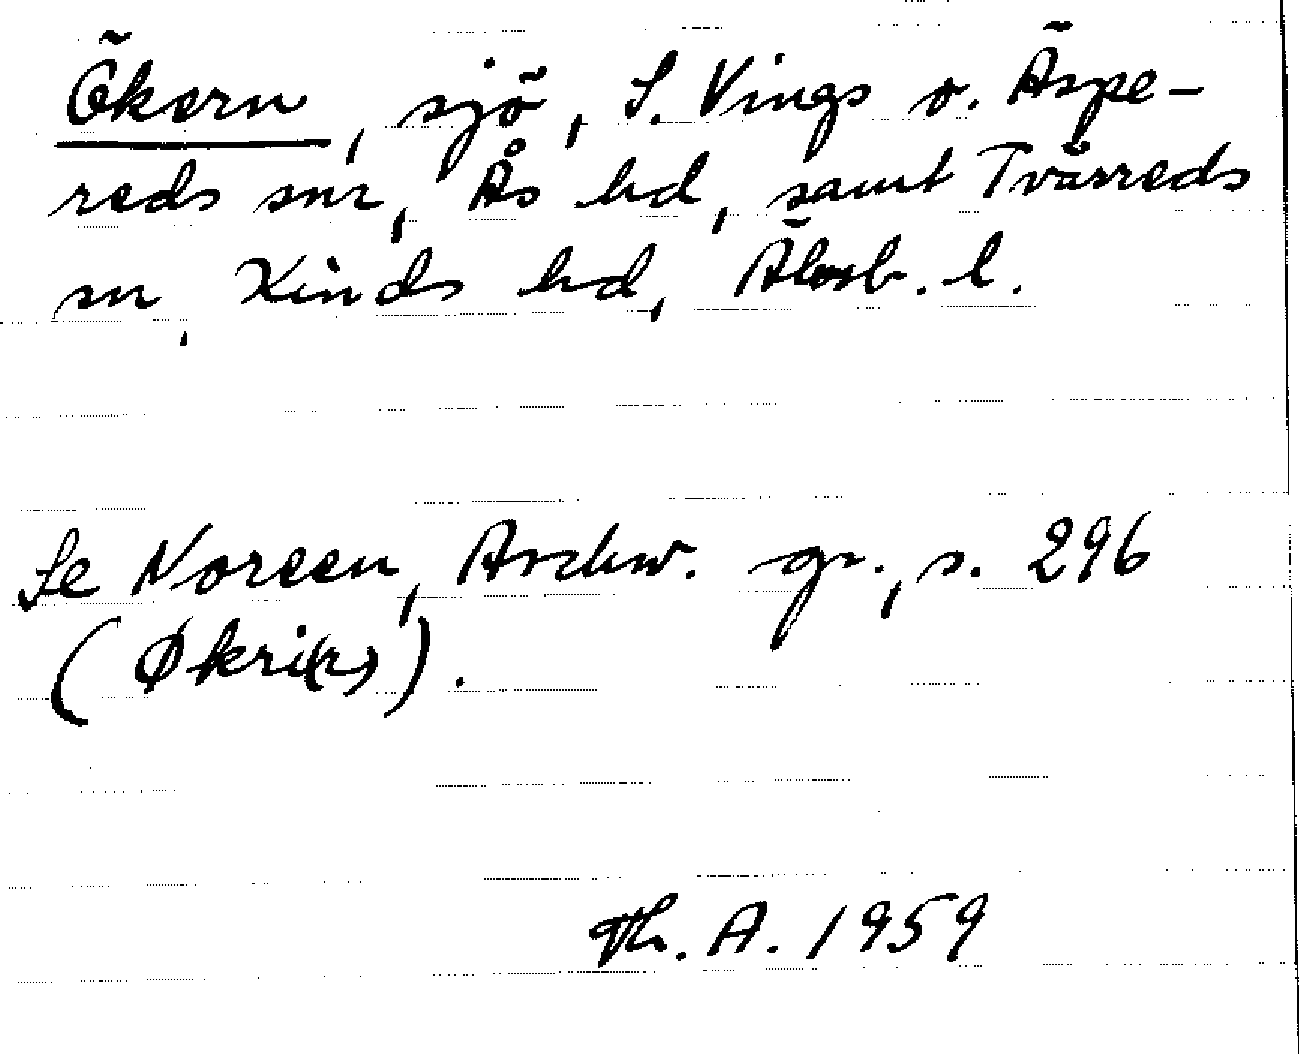 Ökern, sjö, S. Vings o. Äspe-
reds snr, Ås hd, samt Tvärreds
sn, Kinds hd, Älvsb. l.
Se Noreen, Aschw. gr., s. 296
(Økri(r)).
Th. A. 1959